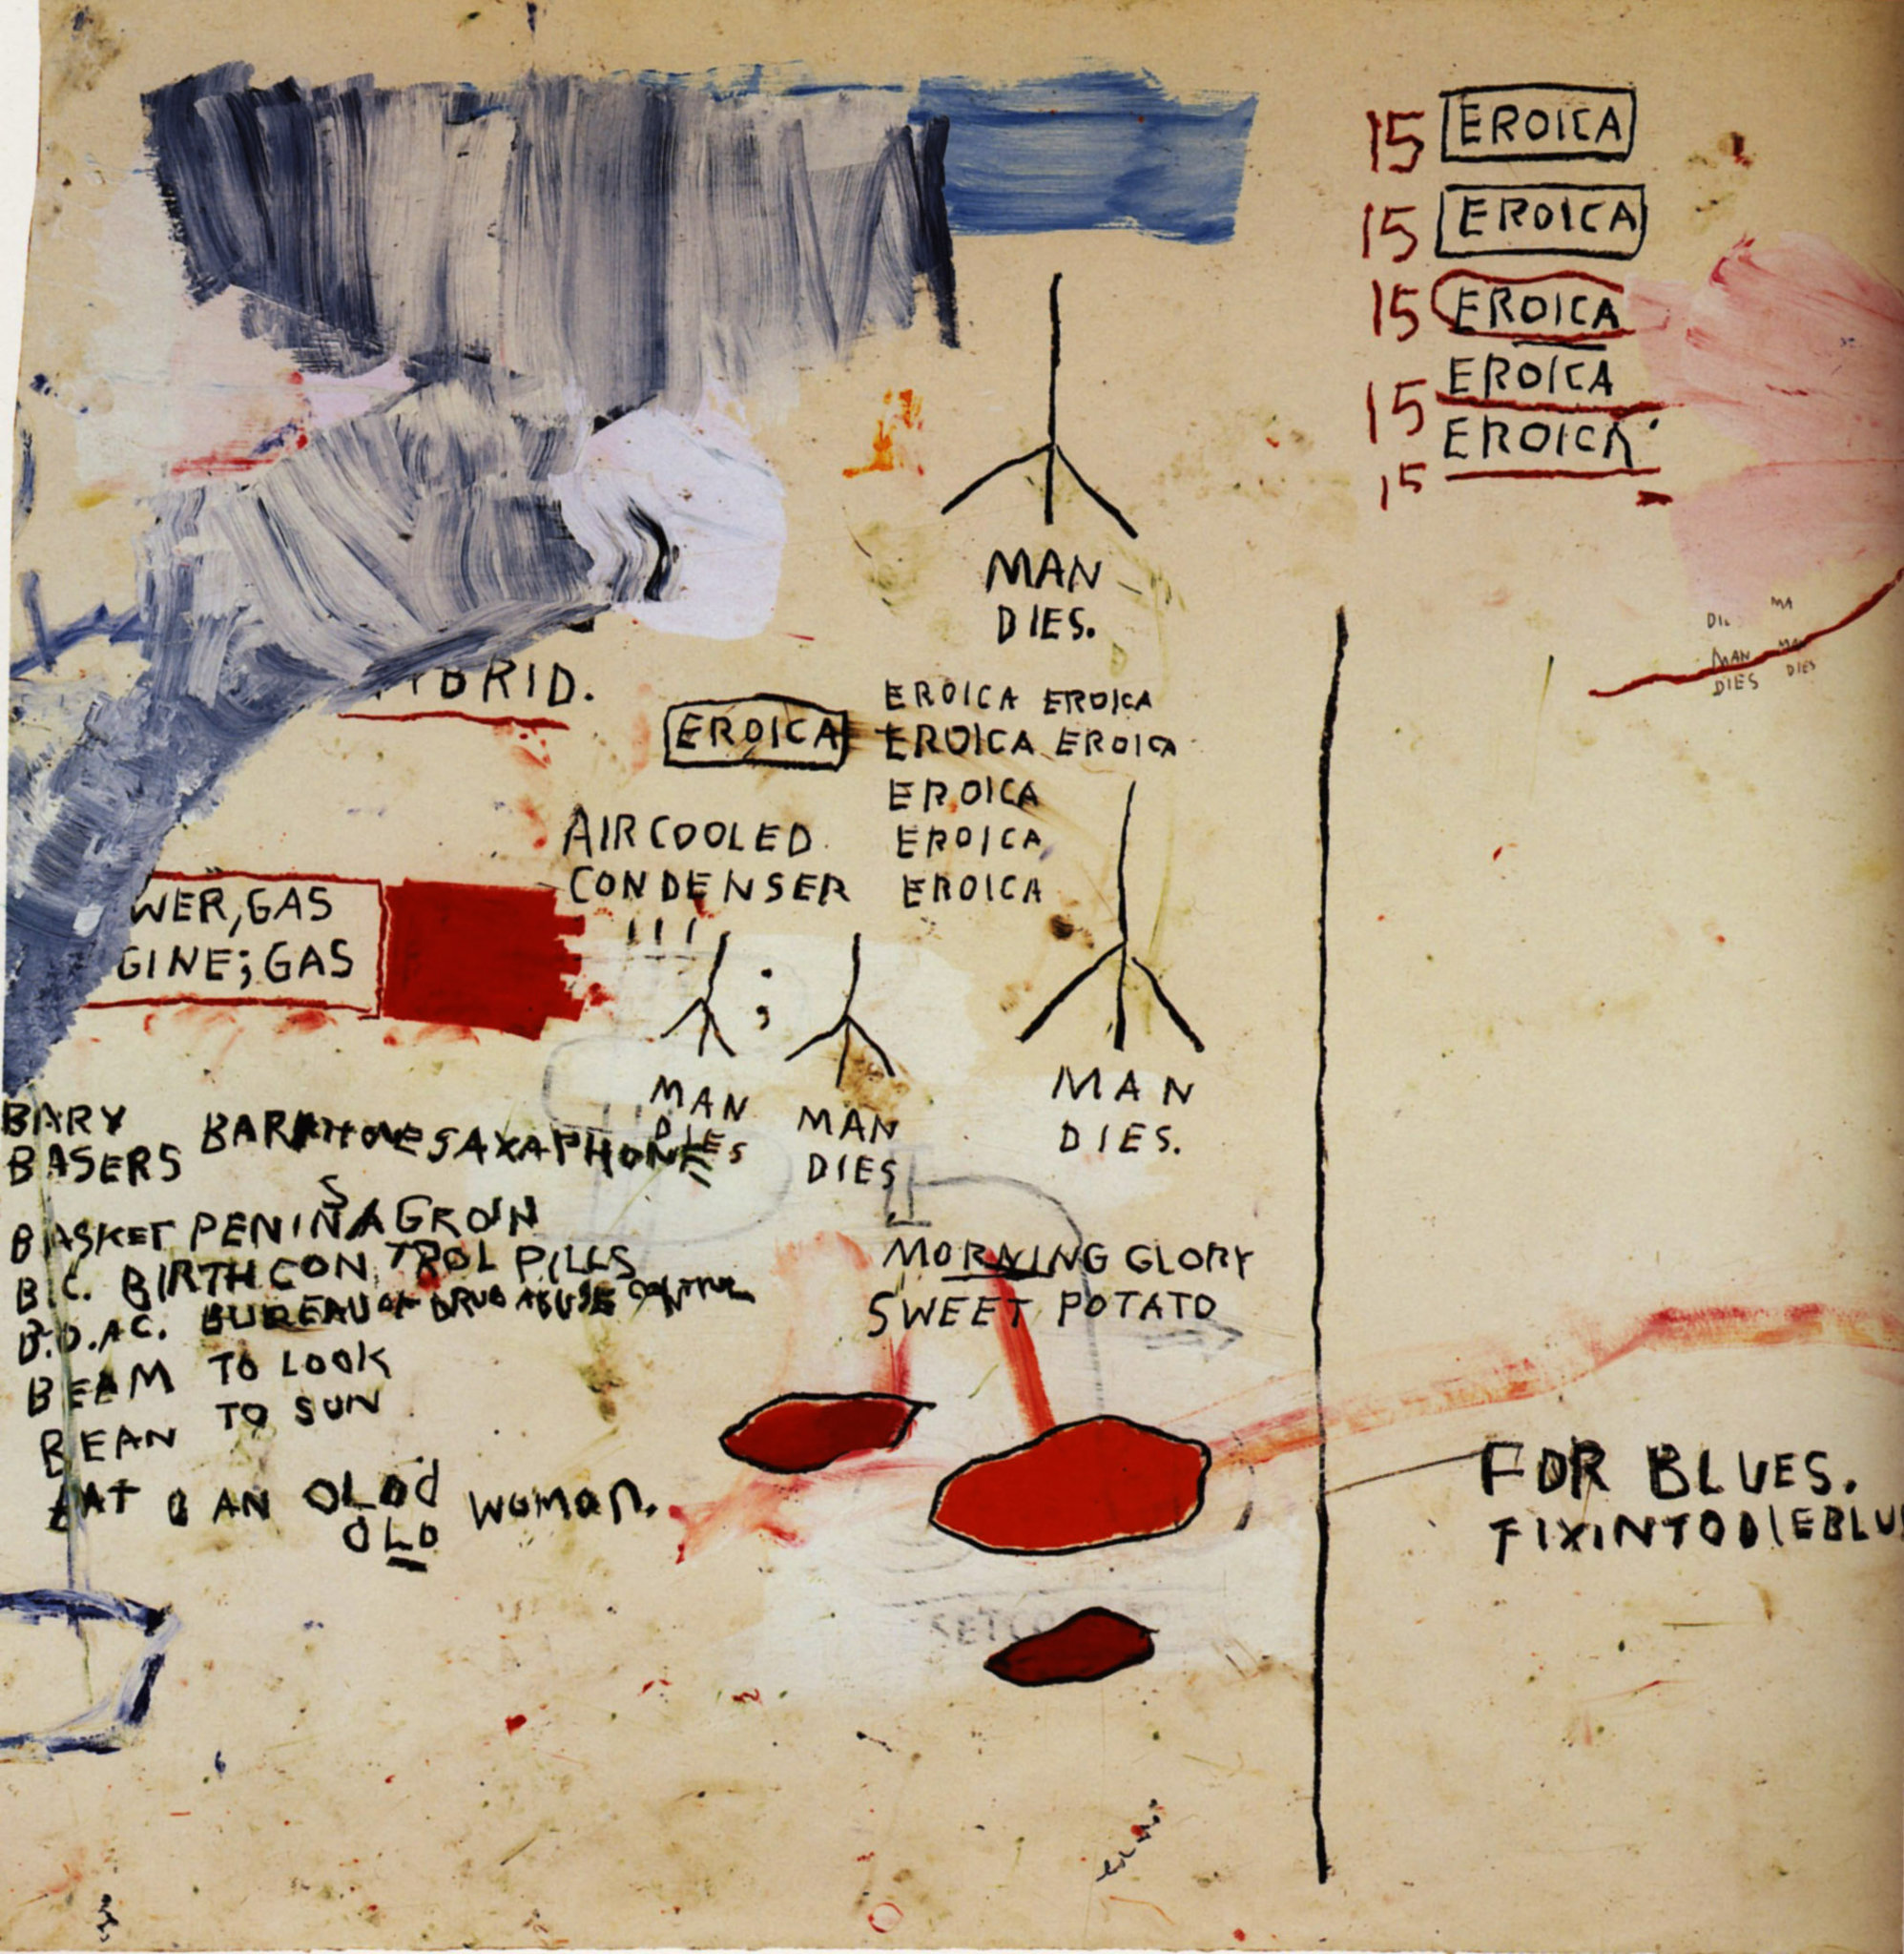 15 EROICA
15 EROICA
15 EROICA
15 EROICA
15 EROICA
MAN
DIES.
MAN
DIES
MAN
DIES
BRID.
EROICA
EROICA EROICA
EROICA EROICA
EROICA
EROICA
EROICA
AIRCOOLED
CONDENSER
WER, GAS
GINE; GAS
;
MAN
DIES
MAN
DIES
MAN
DIES.
BARY BARITONE SAXAPHONE
BASERS
S
BASKET PENIN A GROIN
B.C. BIRTH CONTROL PILLS
B.D.AC. BUREAU OF DRUG ABUSE CONTROL
BEAM TO LOOK
BEAN TO SUN
BAT AN OLD WOMAN.
OLD
MORNING GLORY
SWEET POTATO
FOR BLUES.
FIXINTODIEBLU